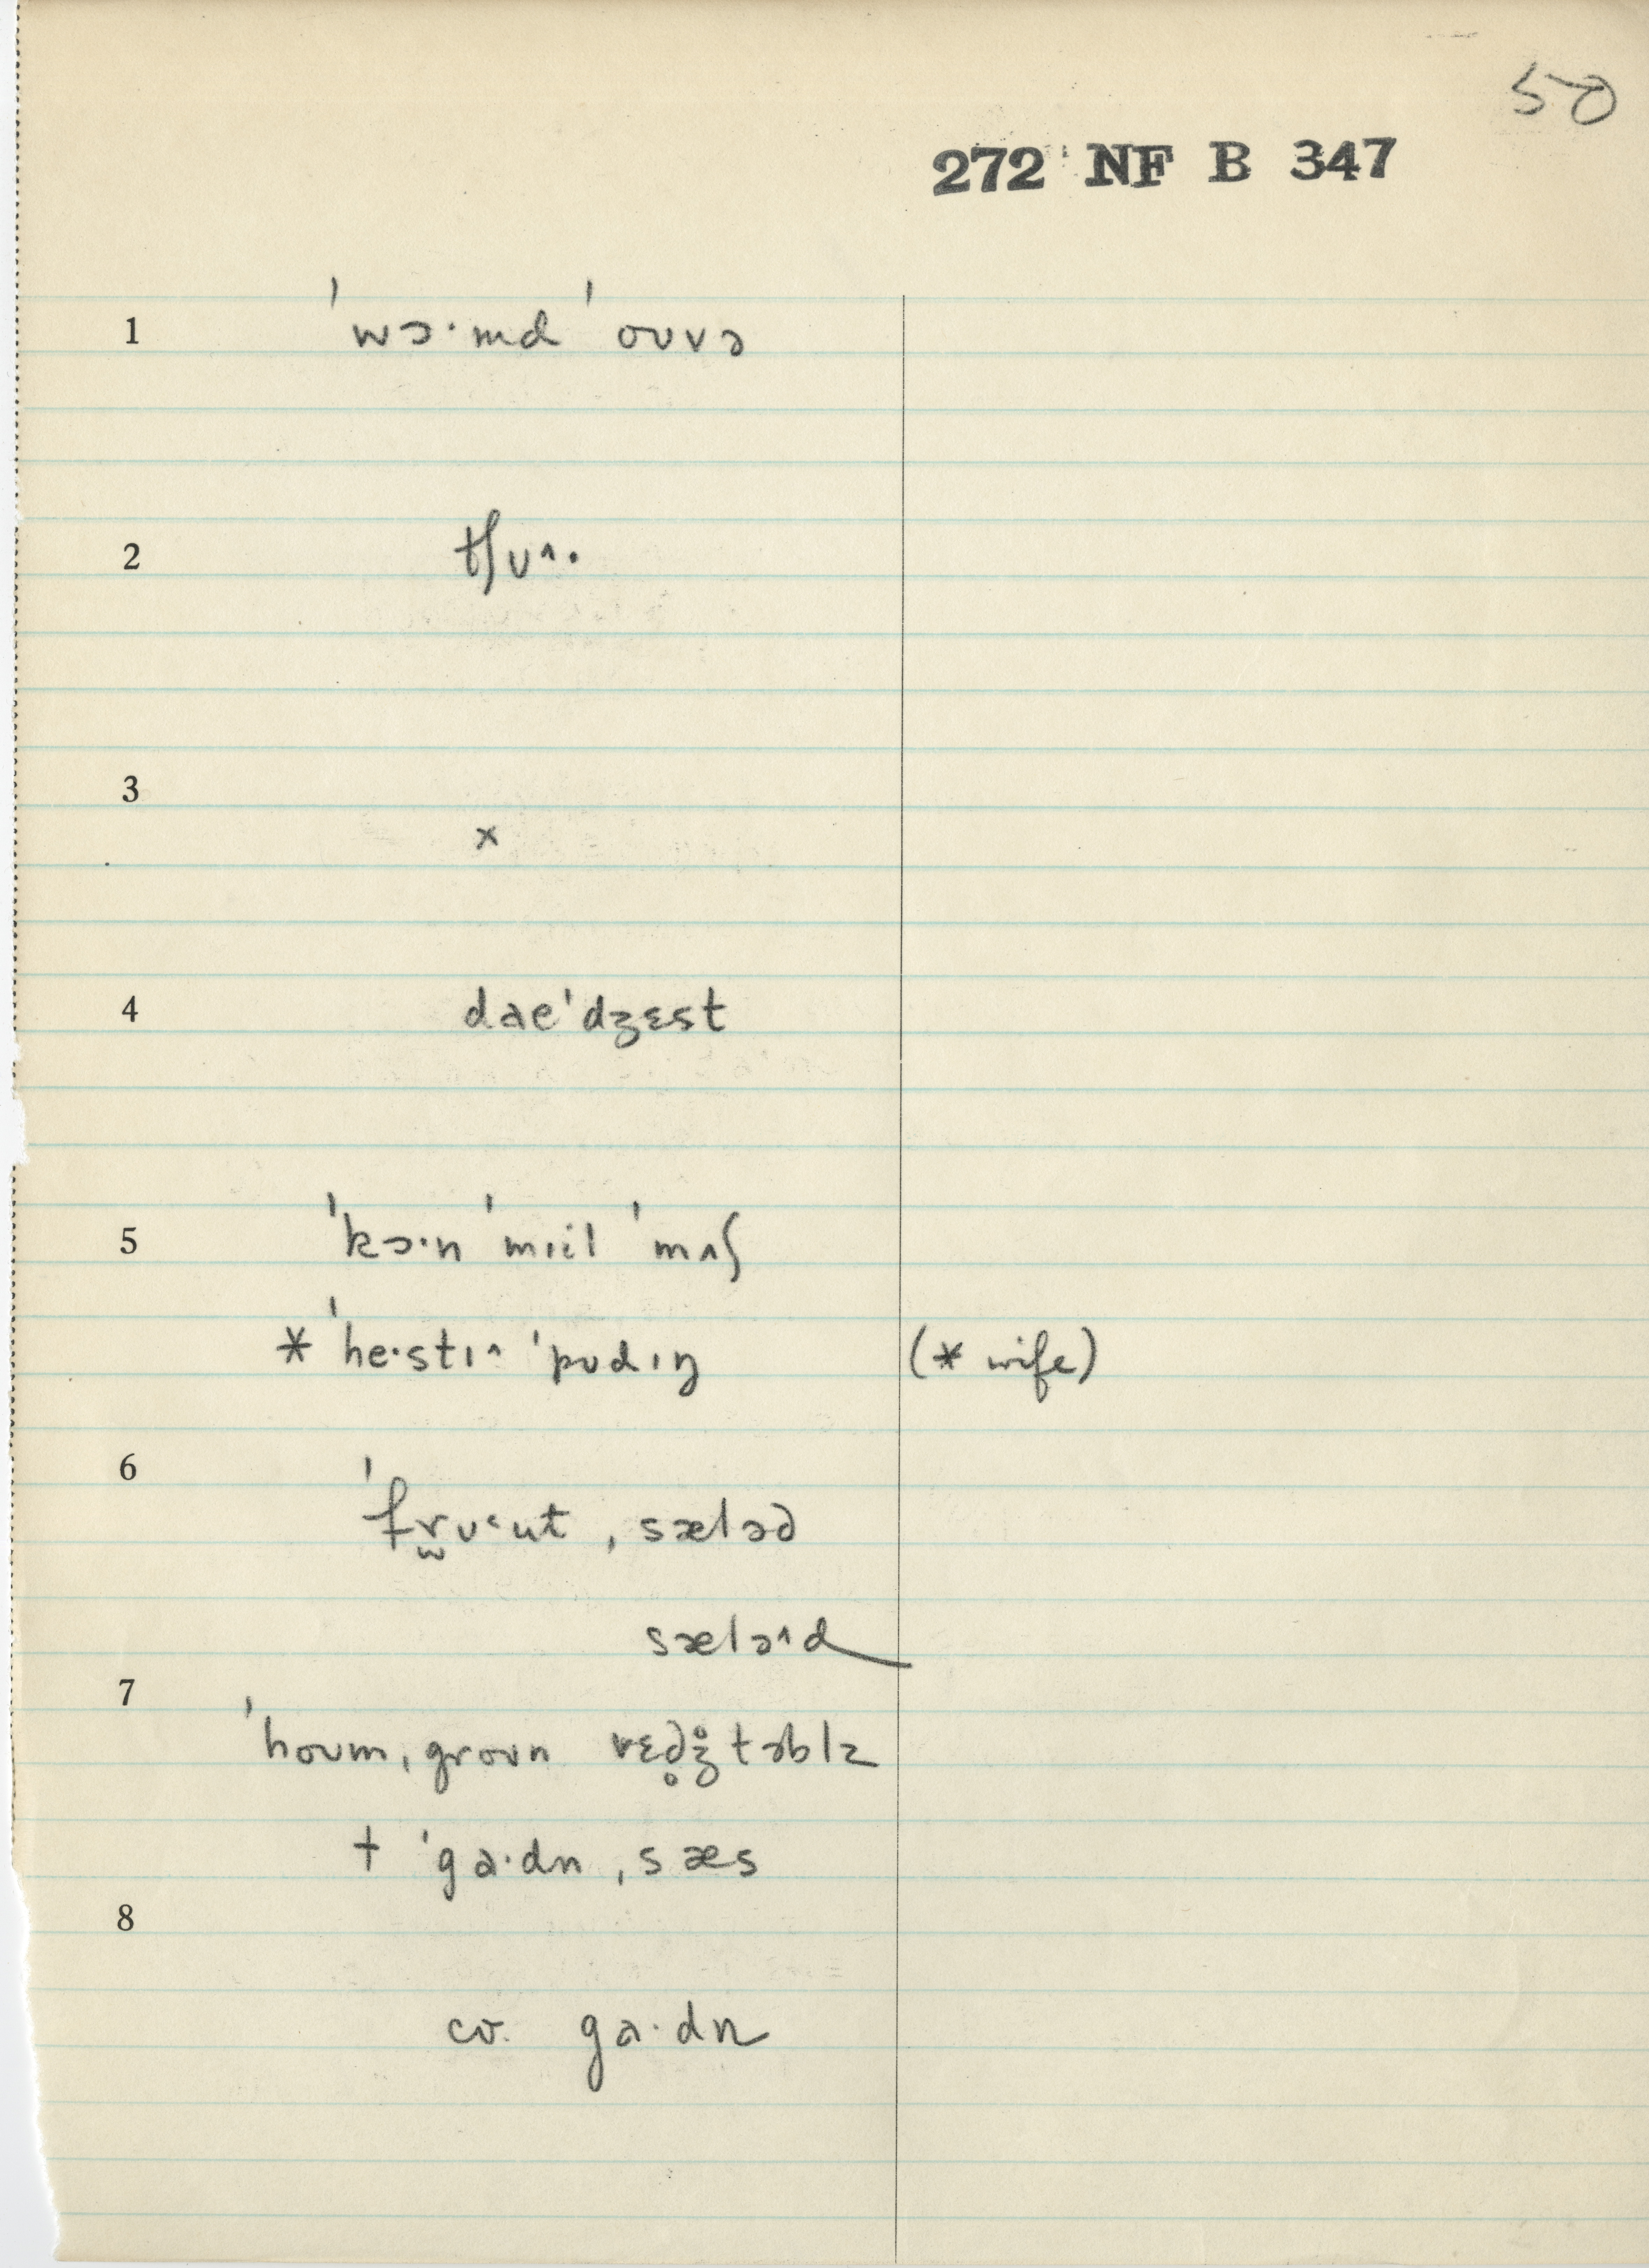 50
272 NF B 347
1 ˈˈwɔ·md ˈˈoʊvə
2 tʃʊ^·
3 x
4 dae'dʒɛst
5 ˈˈkɔ·n ˈˈmɪil ˈˈmʌʃ
* ˈˈhe·stɪ^ ˈpʊdɪŋ (* wife)
6 ˈˈfr̫ʊ˂ut ˌsæləd
sælə^d
7 ˈˈhoʊm ˌgroʊn vɛd̥ʒ̊təblz
† ˈga·dn ˌsæs
8
cv. ga·dn